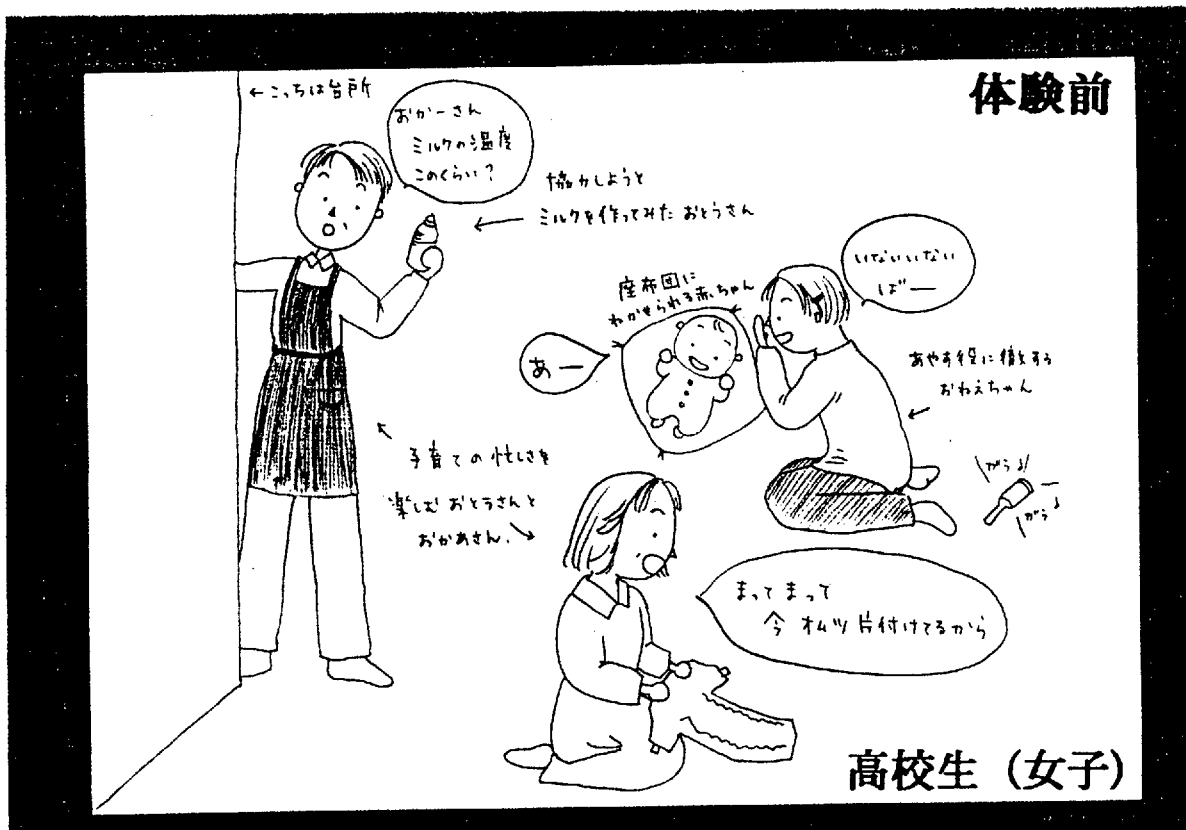 体験前
←こっちは台所
おかーさん
ミルクの温度
このくらい?
協力しようと
ミルクを作ってみた おとうさん
いないいない
ばー
座布団に
ねかせられる赤ちゃん
あー
あやす役に徹する
おねえちゃん
子育ての忙しさを
楽しむ おとうさんと
おかあさん、
がら♪
がら♪
まって まって
今 オムツ 片付けてるから
高校生(女子)